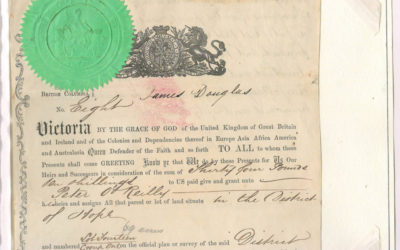 BRITISH COLUMBIA
James Douglas
No. Eight
Victoria BY THE GRACE OF GOD of the United Kingdom of Great Britain
and Ireland and of the Colonies and Dependencies thereof in Europe Asia Africa America
and Australasia Queen Defender of the Faith and so forth TO ALL to whom these
Presents shall come GREETING Know ye that We do by these Presents for Us Our
Heirs and Successors in consideration of the sum of Thirty four Pounds
ten shillings to US paid give and grant unto
Peter O'Reilly
his heirs and assigns All that parcel or lot of land situate in the District
of Hope
69 acres
Lot Fourteen
and numbered on the official plan or survey of the said District